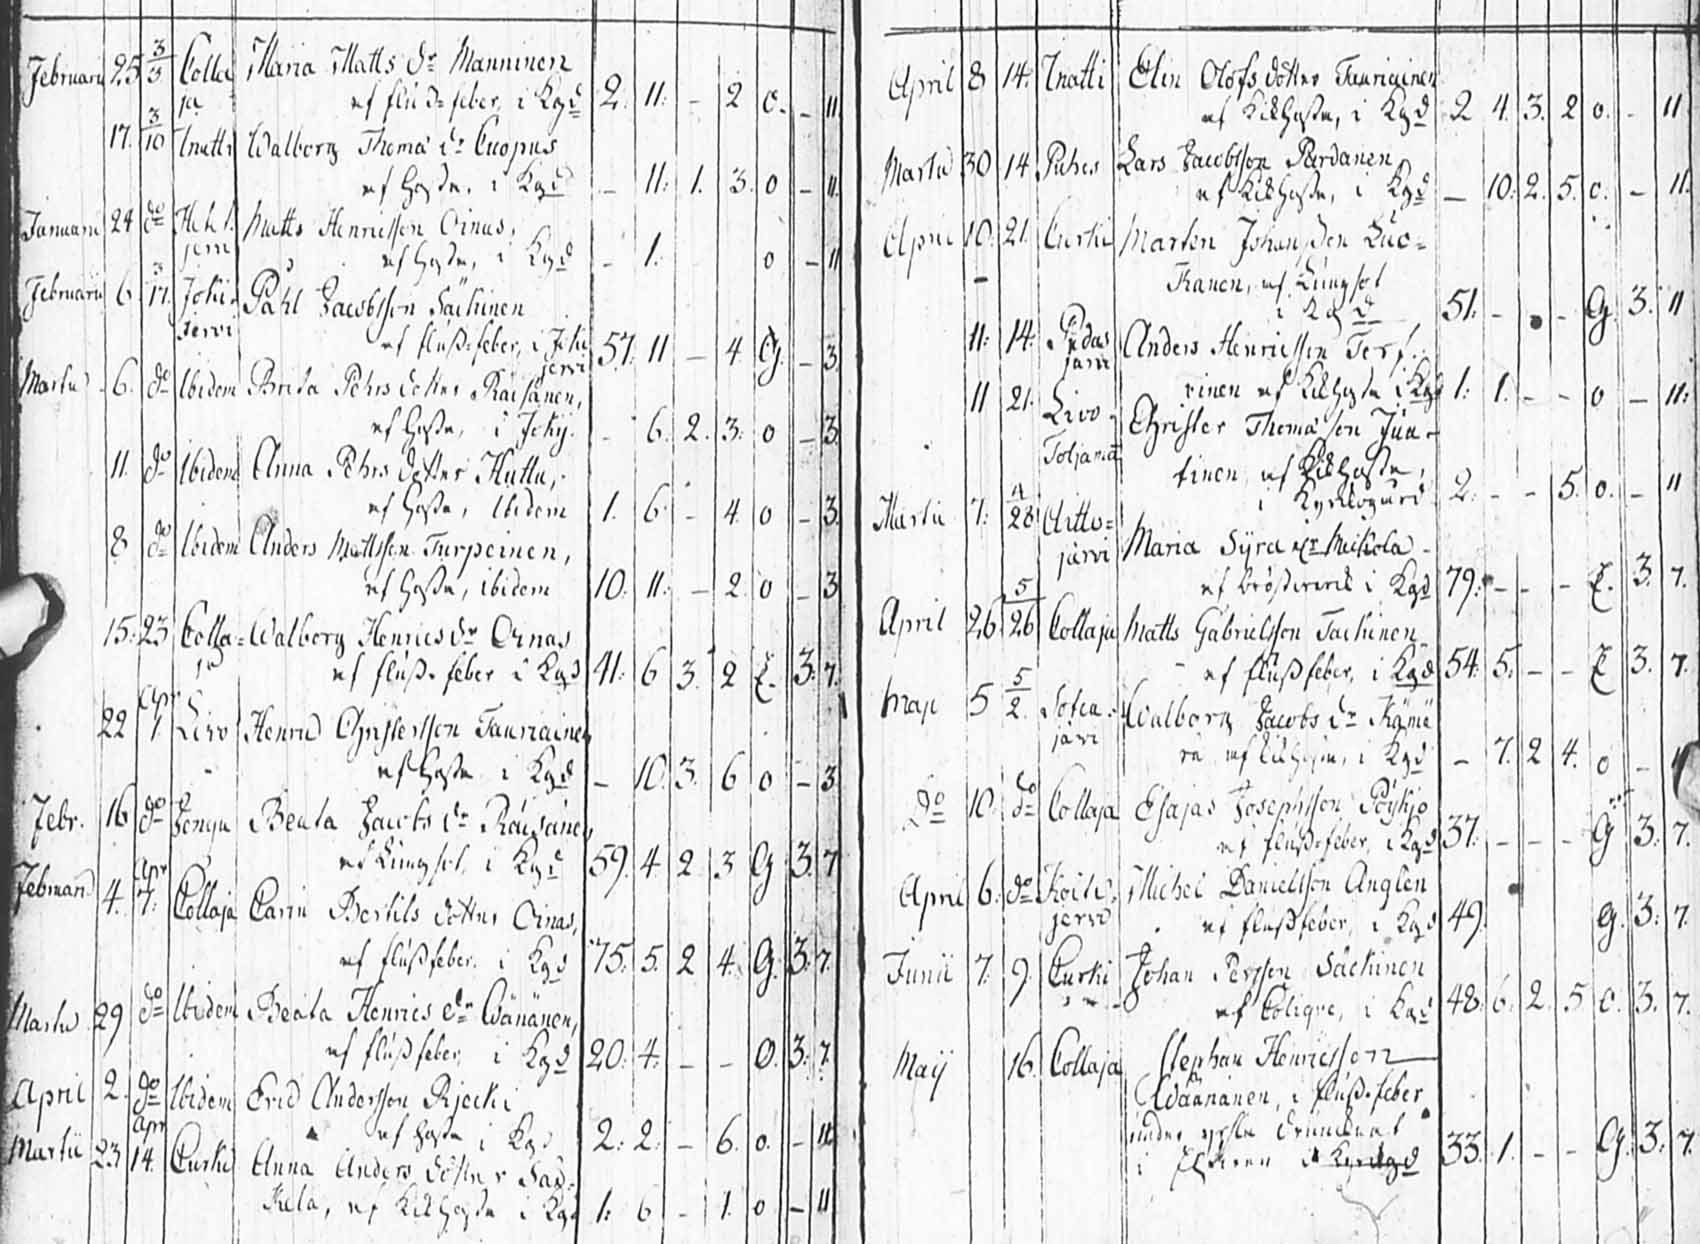 Februarii 25 3/3 Colla Maria Matts dr Manninen
ja af fluss-feber, i Kgd 2. 11. - 2 o. - 11
17. 3/10 Inatti Walborg Thomæ dr Cuopus
af hosta, i Kgd - 11: 1. 3. o - 11.
Januarii 24 do Hett- Matts Henricsson Oinas,
jerwi af hosta, i Kgd - 1. o - 11
Februarii 6. 3/17. Jokij- Påhl Jacobsson Säckinen
jerwi af fluss-feber, i Jokijerwi 57. 11 - 4 G. - 3
Martii 6. do Ibidem Brita Pehrs dotter Räisänen,
af hosta, i Jokij. - 6. 2. 3. o - 3.
11. do Ibidem Anna Pehrs dotter Huttu,
af hosta, Ibidem 1. 6 - 4. o - 3.
8 do Ibidem Anders Mattsson Turpeinen,
af hosta, ibidem 10. 11. - 2. o - 3
15. 23 Colla= Walborg Henrics dr Oinas
ja af fluss-feber i Kgd 41. 6 3. 2 E. 3. 7.
Apr
22 1. Livo Henric Christersson Tauriainen
af hosta i Kgd - 10. 3. 6 o - 3
Febr. 16 do Jongu Beata Jacobs dr Räisänen
af Lungsot, i Kgd 59. 4. 2 3 G 3. 7
Apr
Februarii 4. 7. Collaja Carin Bertils dotter Oinas,
af flussfeber. i Kgd 75. 5. 2 4. G. 3. 7.
Martii 29 do Ibidem Beata Henrics dr Wänänen,
af flussfeber, i Kgd 20. 4. - - O. 3. 7.
April 2. do Ibidem Eric Andersson Rjecki
af hosta i Kgd 2. 2. - 6. o. - 11
Apr
Martii 23 14. Curki Anna Anders dotter Sar-
kela, af Kikhosta i Kgd 1. 6 - 1. o - 11
April 8 14. Inatti Elin Olofs dotter Tauriainen
af Kikhosta, i Kgd 2 4. 3. 2 o. - 11
Martii 30 14 Puhos Lars Jacobsson Pardanen,
af Kikhosta, i Kgd - 10. 2. 5. o. - 11.
April 10. 21. Curki Marten Johansson Luo=
kanen, af Lungsot
i Kgd 51. - - - G. 3. 11
11. 14. Pudas Anders Henricsson Ter-
järvi
rinen af Kikhosta i Kgd 1. 1. - - o - 11.
11 21. Livo- Christer Thomæ son Jun-
Toljama
tinen, af Kikhosta,
i Kyrkogård 2. - - 5. o. - 11
Martii 7. 4/28 Aitto= Maria Syra Mickola
järvi af bröstwerk i Kgd 79. - - - E. 3. 7.
April 26 5/26 Collaja Matts Gabrielsson Tackinen
af flussfeber, i Kgd 54. 5. - - E 3. 7.
Maji 5 5/2. Walborg Jacobs dr Kämä
järvi
rä, af Kikhosta, i Kgd - 7. 2 4. o - 11
Do 10. do Collaja Esajas Josephsson Pöykjo
af fluss-feber, i Kgd 37. - - - G 3. 7.
April 6. do Michel Danielsson Anglen
jerwi af flussfeber, i Kgd 49. G. 3. 7.
Junii 7. 9. Curki Johan Persson Säckinen
af Colique, i Kgd 48. 6. 2. 5 C. 3. 7.
Maij 16. Collaja Stephan Henricsson
Wäänänen, i fluss-feber
i i Kyrkogd 33. 1. - - G. 3. 7.